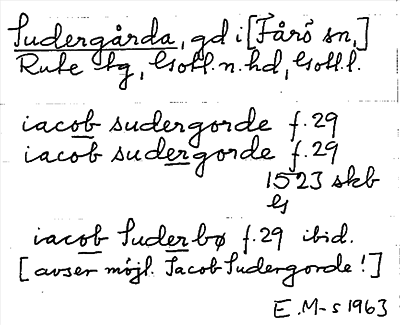 Sudergårda, gd i [Fårö sn,]
Rute tg, Gotl. n. hd, Gotl. l.
iacob sudergorde f. 29
iacob sudergorde f. 29
1523 skb
G
iacob Suderbø f. 29 ibid.
[avser möjl. Jacob Sudergorde!]
E. M-s 1963